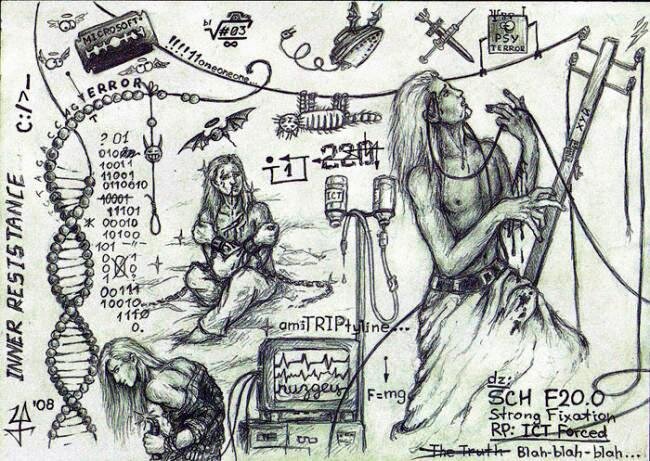 MICROSOFT
!!!!11oneoneone...
b|
√#03
PSY
TERROR
XYZ
C:/>_
TAG CCAG TERROR
T
? 01
10011
11001
0110010
10001
11101
* 00010
10100
101 -"-
00111
10010
0.
i
1
ICT
INNER RESISTANCE
'08
+ amiTRIPtyline...
F=mg
dz:
SCH F20.0
Strong Fixation
RP: ICT Forced
The Truth Blah-blah-blah...